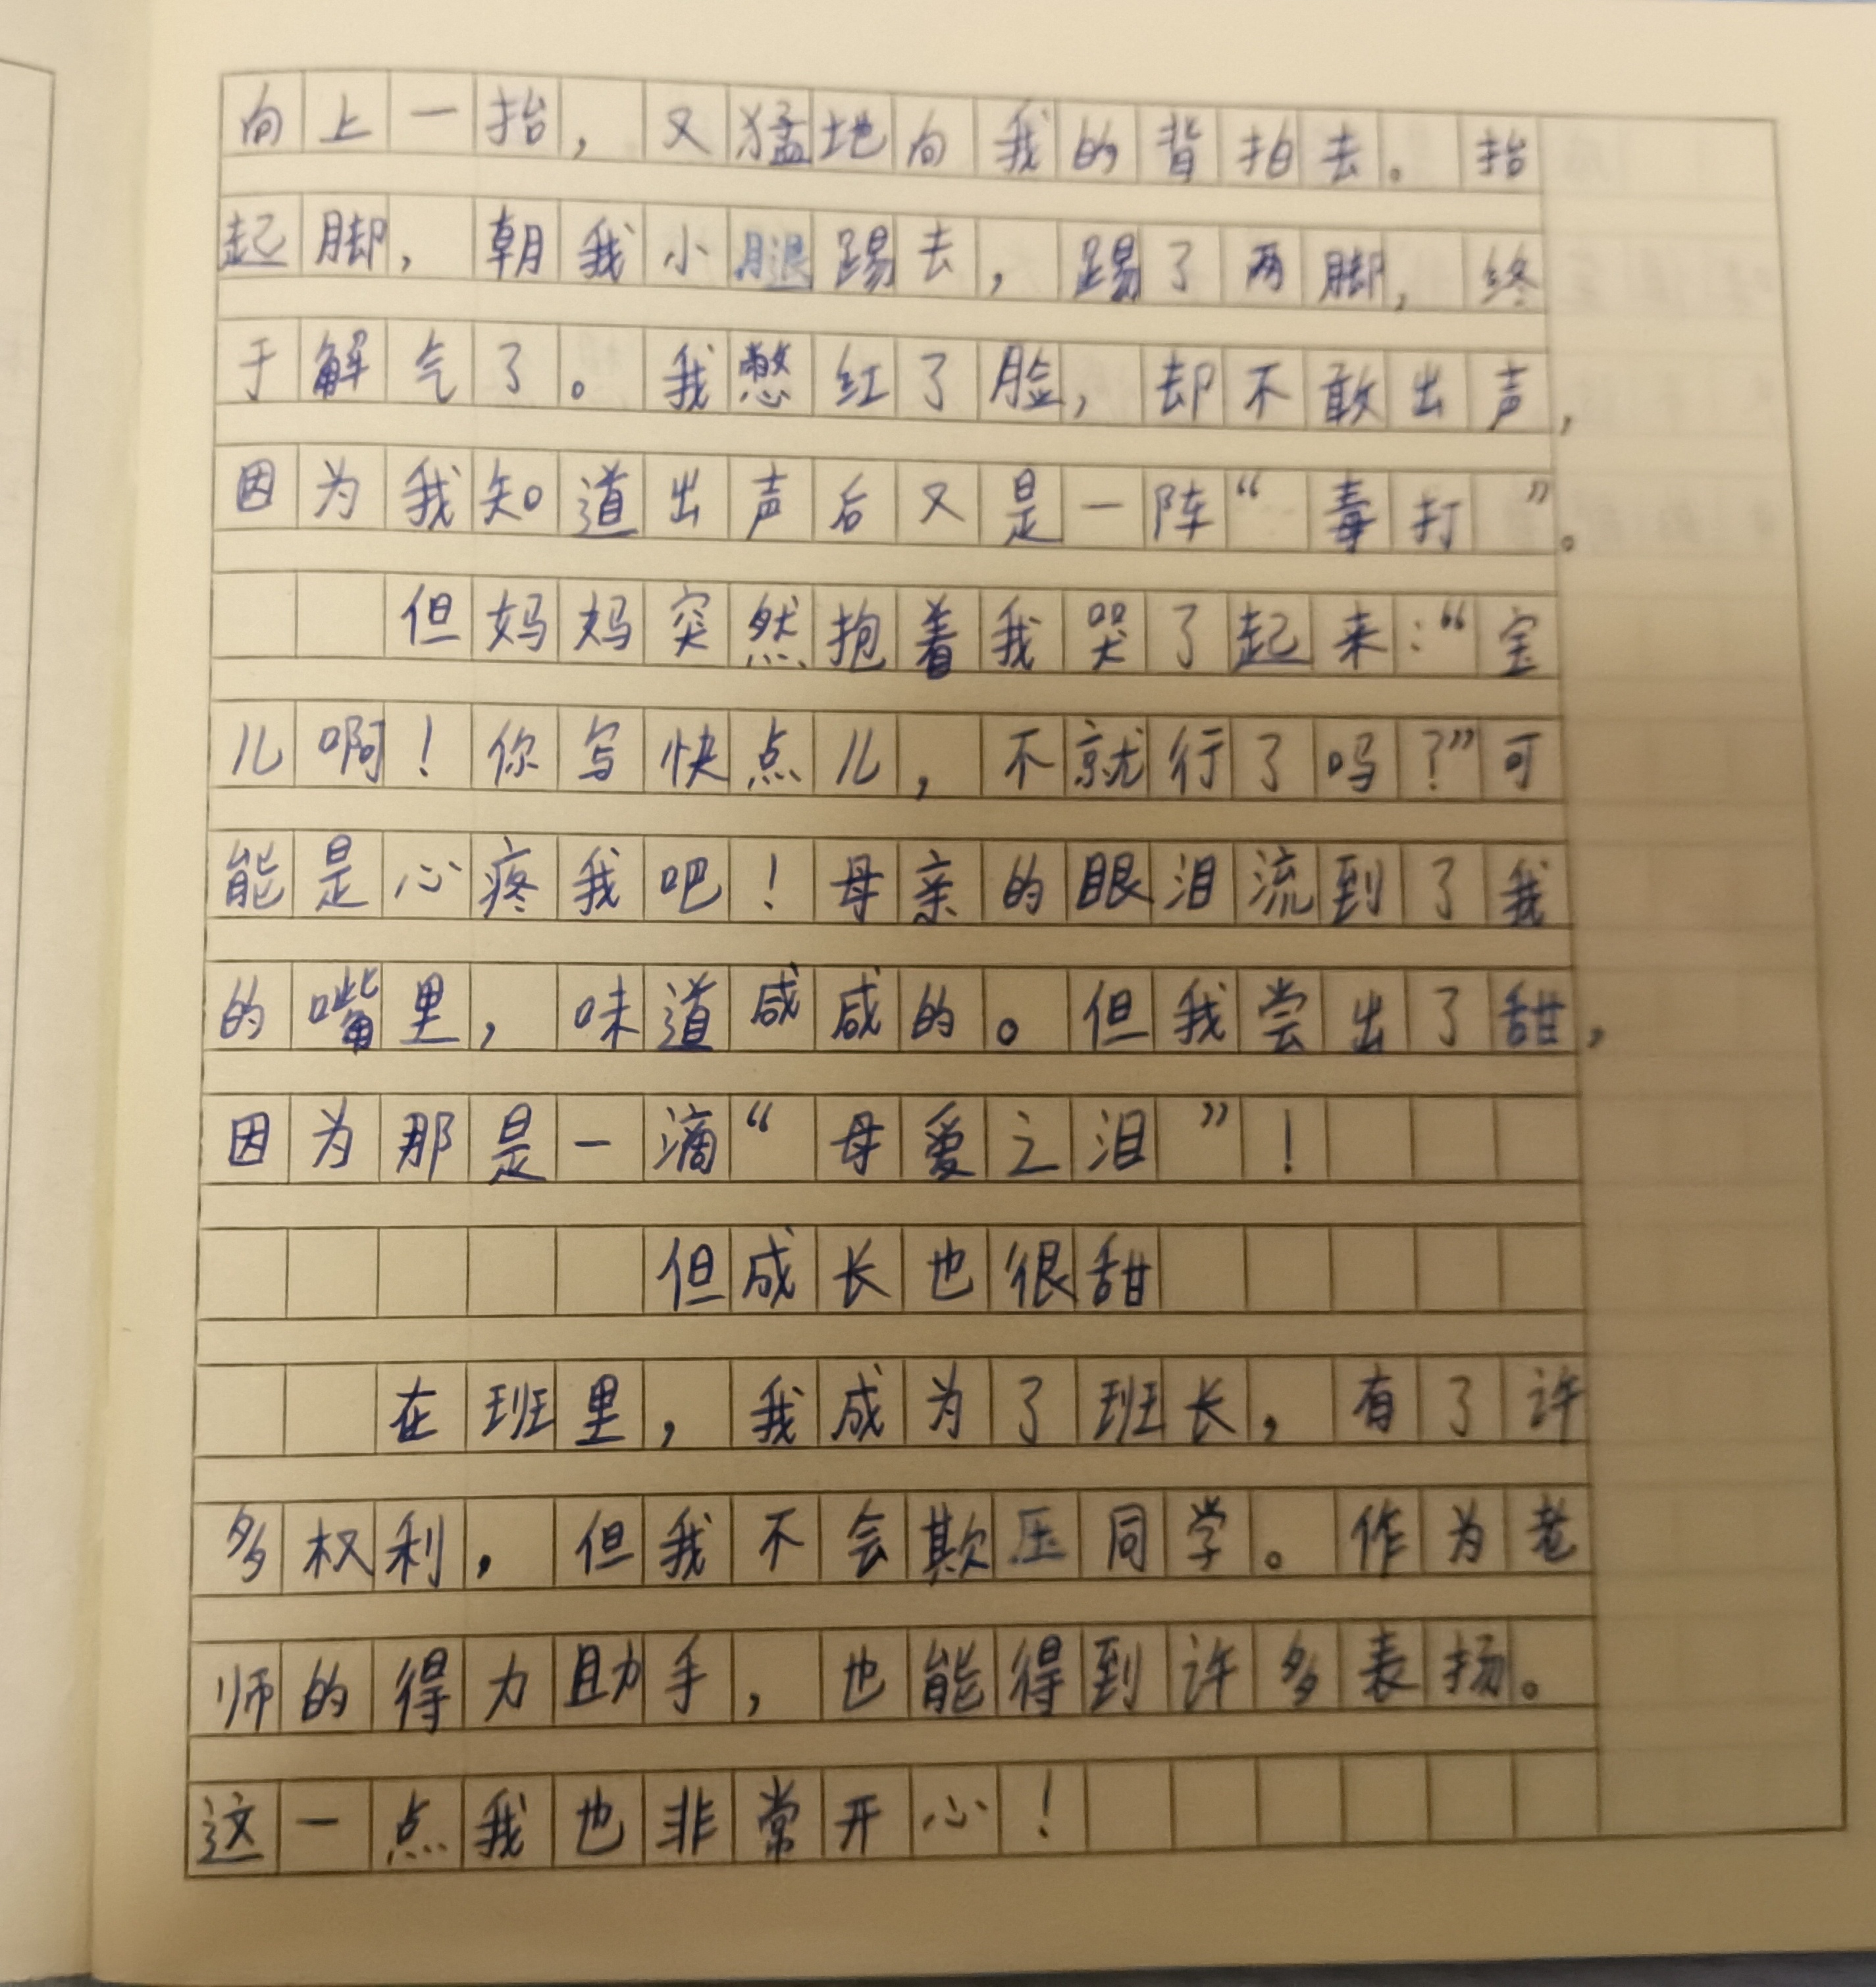 向上一抬，又猛地向我的背拍去。抬
起脚，朝我小腿踢去，踢了两脚，终
于解气了。我憋红了脸，却不敢出声，
因为我知道出声后又是一阵“毒打”。
但妈妈突然抱着我哭了起来：“宝
儿啊！你写快点儿，不就行了吗？”可
能是心疼我吧！母亲的眼泪流到了我
的嘴里，味道咸咸的。但我尝出了甜，
因为那是一滴“母爱之泪”！
但成长也很甜
在班里，我成为了班长，有了许
多权利，但我不会欺压同学。作为老
师的得力助手，也能得到许多表扬。
这一点我也非常开心！